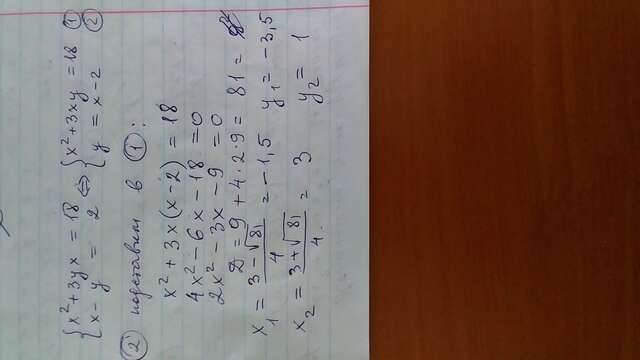 {x² + 3yx = 18 ⇔ {x² + 3xy = 18 ①
{x - y = 2 {y = x - 2 ②
② подставим в ①:
x² + 3x(x-2) = 18
4x² - 6x - 18 = 0
2x² - 3x - 9 = 0
D = 9 + 4·2·9 = 81 = 9²
x₁ = (3 - √81)/4 = -1,5 y₁ = -3,5
x₂ = (3 + √81)/4 = 3 y₂ = 1